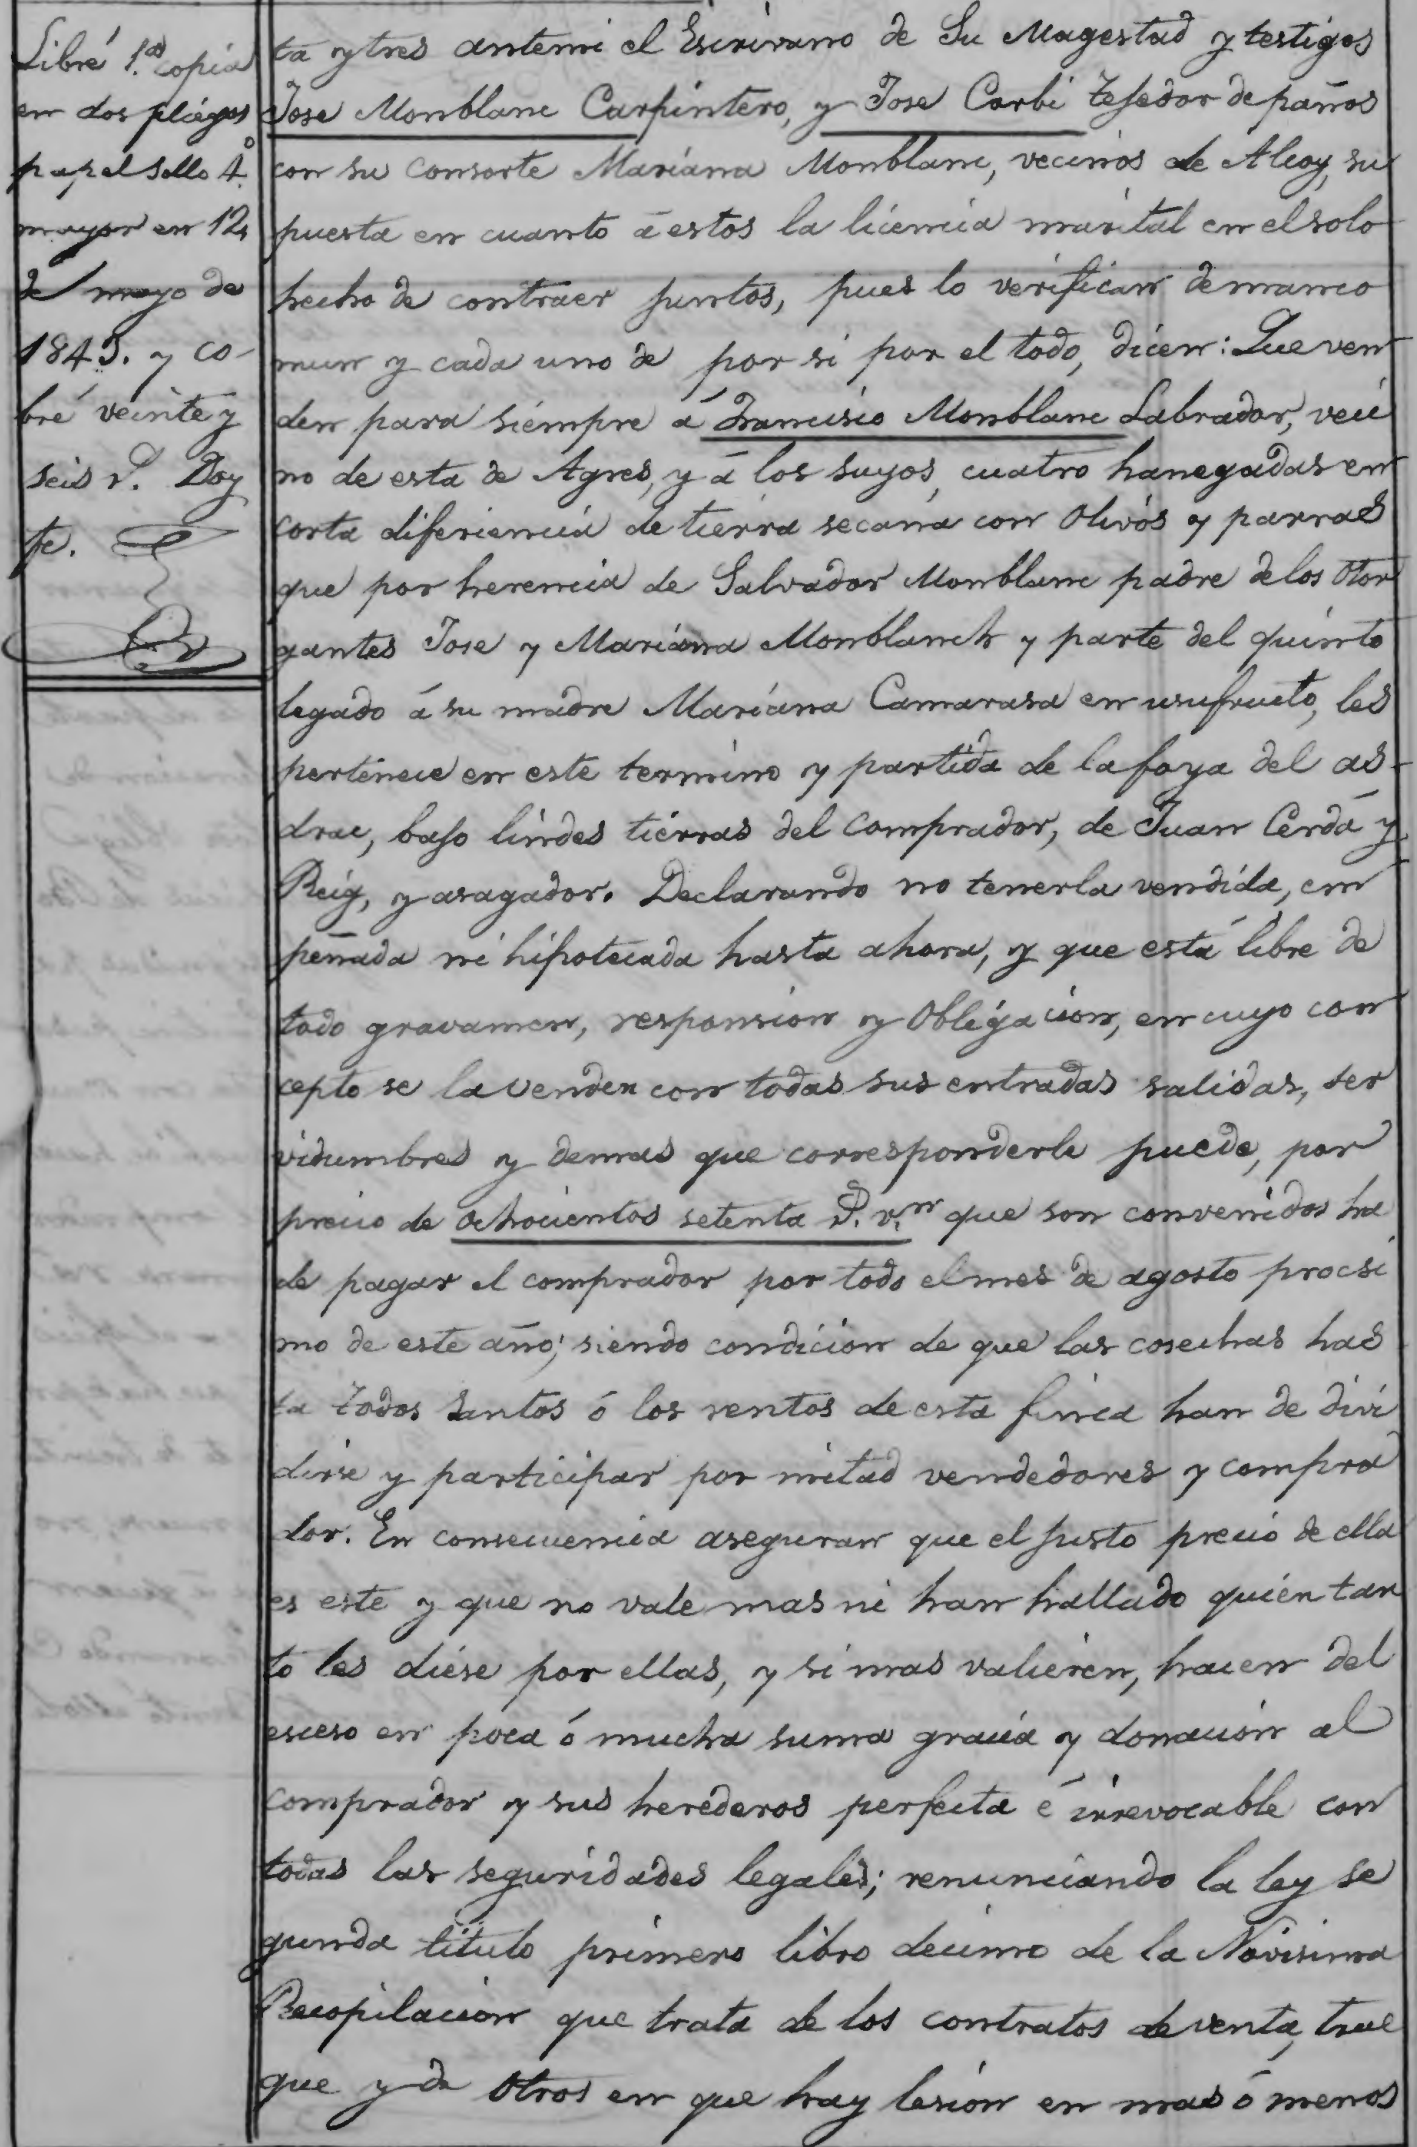 Libré 1.ª copia
en dos pliegos
papel sello 4.º
mayor en 12
de mayo de
1843. y co-
bré veinte y
seis r.s Doy
fe.
ta y tres antemi el Escrivano de Su Magestad y testigos
Jose Monblanc Carpintero, y Jose Carbi tejedor de paños
con su consorte Mariana Monblanc, vecinos de Alcoy, su
puesta en cuanto á estos la licencia marital en el solo
hecho de contraer juntos, pues lo verifican de manco
mun y cada uno de por si por el todo, dicen: Que ven
den para siempre á Francisco Monblanc Labrador, veci
no de esta de Agres, y á los suyos, cuatro hanegadas en
corta diferiencia de tierra secana con Olivos y parras
que por herencia de Salvador Monblanc padre de los Otor
gantes Jose y Mariana Monblanch y parte del quinto
legado á su madre Mariana Camarasa en usufructo, les
pertenece en este termino y partida de la foya del as-
drac, bajo lindes tierras del comprador, de Juan Cerdá y
Reig, y asagador. Declarando no tenerla vendida, em
peñada ni hipotecada hasta ahora, y que está libre de
todo gravamen, responsion y Obligacion, en cuyo con
cepto se la venden con todas sus entradas salidas, ser
vidumbres y demas que corresponderle puede, por
precio de ochocientos setenta r.s v.n que son convenidos ha
de pagar el comprador por todo el mes de agosto procsi
mo de este año; siendo condicion de que las cosechas has
ta todos santos ó los rentos de esta finca han de divi
dirse y participar por mitad vendedores y compra
dor. En consecuencia aseguran que el justo precio de ella
es este y que no vale mas ni han hallado quién tan
to les diese por ellas, y si mas valieren, hacen del
esceso en poca ó mucha suma gracia y donación al
comprador y sus herederos perfecta é irrevocable con
todas las seguridades legales; renunciando la ley se
gunda titulo primero libro decimo de la Novisima
Recopilacion que trata de los contratos de venta, true
que y de Otros en que hay lesión en mas ó menos